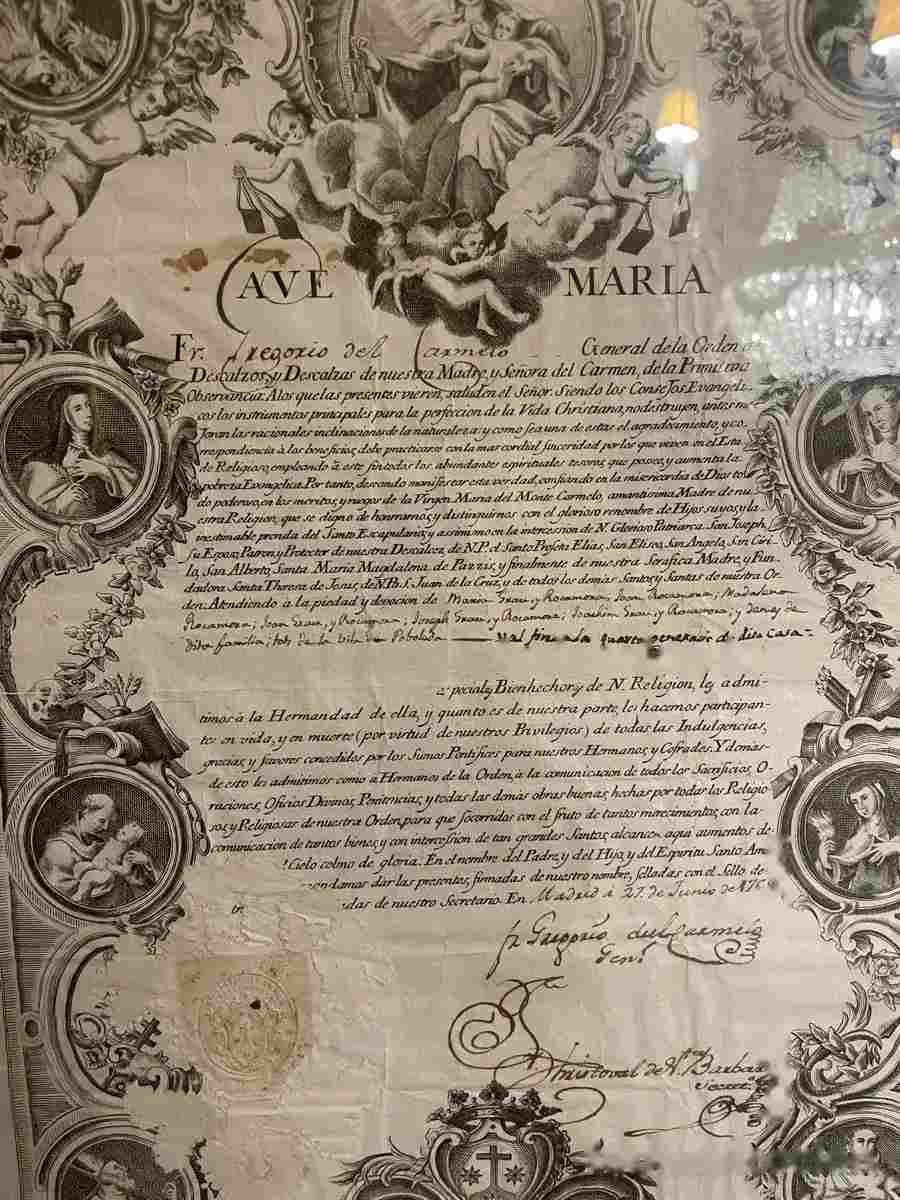 AVE MARIA
Fr. Gregorio del Carmelo General de la Orden
Descalzos, y Descalzas de nuestra Madre, y Señora del Carmen, de la Primitiva
Observancia. A los que las presentes vieren, saluden el Señor. Siendo los Consejos Evangeli-
cos los instrumentos principales para la perfeccion de la Vida Christiana, no destruyen, antes me
joran las racionales inclinaciones de la naturaleza: y como sea una de estas el agradecimiento, y co-
rrespondencia à los beneficios, debe practicarse con la mas cordial sinceridad por los que viven en el Esta-
do Religioso, empleando à este fin todos los abundantes espirituales tesoros, que posee, y aumenta la
pobreza Evangelica. Por tanto, deseando manifestar esta verdad, confiando en la misericordia de Dios todo
do poderoso, en los meritos, y ruegos de la Virgen Maria del Monte Carmelo, amantisima Madre de nu
estra Religion, que se digno de honrarnos, y distinguirnos con el glorioso renombre de Hijos suyos, y la
inestimable prenda del Santo Escapulario, y assimismo en la intercession de N. Glorioso Patriarca San Joseph,
su Esposo, Patron, y Protector de nuestra Descalcez, de N. P. el Santo Profeta Elias, San Eliseo, San Angelo, San Ciri-
lo, San Alberto, Santa Maria Magdalena de Pazzis, y finalmente de nuestra Serafica Madre, y Fun-
dadora Santa Theresa de Jesus, de N. P. S. Juan de la Cruz, y de todos los demàs Santos, y Santas de nuestra Or-
den. Atendiendo à la piedad y devocion de Maria Grau, y Rocamora, Joan Rocamora, Madalena
Rocamora; Joan Grau, y Rocamora; Joseph Grau, y Rocamora; Joachim Grau, y Rocamora; y demes de
dita familia; tots de la Vila de Poboleda val fins a la quarta generacio de dita casa
peciales Bienhechores de N. Religion, les admi-
timos à la Hermandad de ella, y quanto es de nuestra parte, les hacemos participan-
tes en vida, y en muerte (por virtud de nuestros Privilegios) de todas las Indulgencias,
gracias, y favores concedidos por los Sumos Pontifices para nuestros Hermanos, y Cofrades. Y demàs
de esto les admitimos como à Hermanos de la Orden, à la comunicacion de todos los Sacrificios, O-
raciones, Oficios Divinos, Penitencias, y todas las demàs obras buenas, hechas por todos los Religio-
sos, y Religiosas de nuestra Orden, para que socorridos con el fruto de tantos merecimientos, con la
comunicacion de tantos bienes, y con intercession de tan grandes Santos, alcancen aqui aumentos de
Cielo colmo de gloria. En el nombre del Padre, y del Hijo, y del Espiritu Santo. Ame
mandamos dar las presentes, firmadas de nuestro nombre, selladas con el Sello de
das de nuestro Secretario. En Madrid à 27 de Junio de 176
fr Gregorio del Carmelo
Genl
Fr.
Christoval de Sta Barbar
Secret